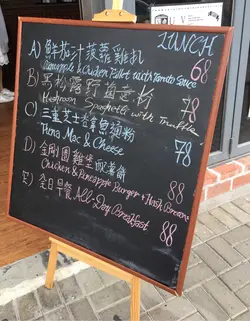 LUNCH
A) 鮮茄汁菠蘿雞扒
Pineapple & Chicken Fillet with Tomato Sauce 68
B) 黑松露野菌意粉 78
Mushroom Spaghetti with Truffle
C) 三重芝士吞拿魚通粉 78
Tuna Mac & Cheese
D) 金剛圈雞堡配薯餅
Chicken & Pineapple Burger + Hash Browns 88
E) 全日早餐 All-Day Breakfast 88